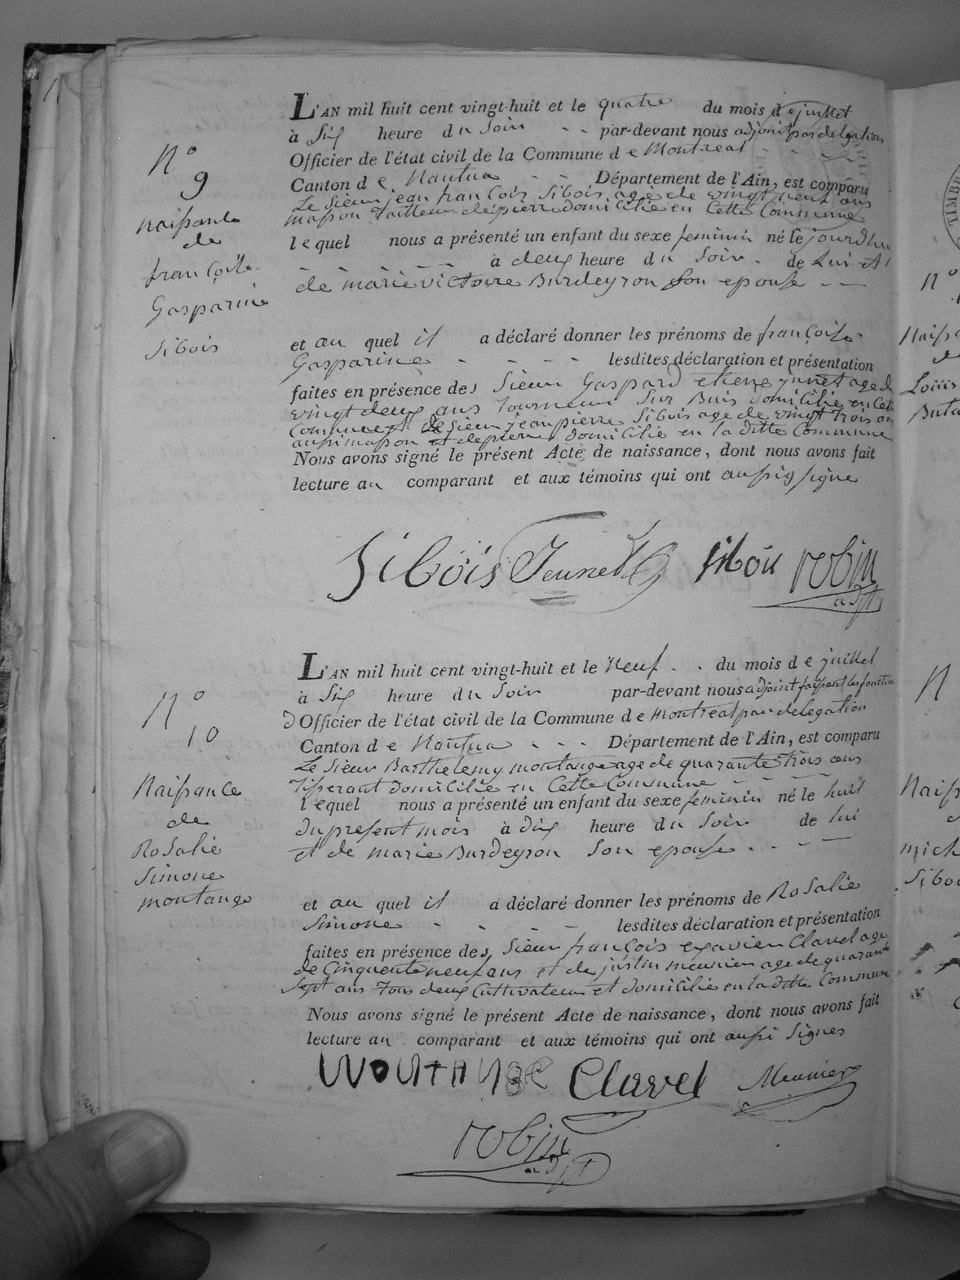 N° 9
Naissance
de
françoise
Gasparine
Sibois
L'AN mil huit cent vingt-huit et le quatre du mois de juillet
à Six heure du Soir - - par-devant nous adjoint par delegation
Officier de l'état civil de la Commune de Montreal - - -
Canton de Nantua - - Département de l'Ain, est comparu
Le Sieur jean françois Sibois agé de vingt neuf ans
masson tailleur de pierre domicilié en Cette Commune
lequel nous a présenté un enfant du sexe feminin né le jourdhui
- - - - - à deux heure du Soir - de Lui et
de marie victoire Burdeyron Son epouse - -
et au quel il a déclaré donner les prénoms de françoise
Gasparine - - - - lesdites déclaration et présentation
faites en présence des Sieur Gaspard etienne junet age de
vingt deux ans tourneur Sur Buis domicilié en Cette
Commune et de Sieur jean pierre Sibois age de vingt trois ans
aussi masson et de pierre domicilié en la ditte Commune
Nous avons signé le présent Acte de naissance, dont nous avons fait
lecture au comparant et aux témoins qui ont aussi signe
Sibois Jeunet Sibois robin
adjt
N° 10
Naissance
de
Rosalie
Simone
montange
L'AN mil huit cent vingt-huit et le Neuf - - du mois de juillet
à Six heure du Soir par-devant nous adjoint faisant les fonction
D Officier de l'état civil de la Commune de montreal par delegation
Canton de Nantua - - - Département de l'Ain, est comparu
Le Sieur Barthelemy montange age de quarante trois ans
Tisserant domicilié en Cette Commune - - - -
lequel nous a présenté un enfant du sexe feminin né le huit
du present mois à dix heure du Soir de lui
et de marie Burdeyron Son epouse - - - -
et au quel il a déclaré donner les prénoms de Rosalie
Simone - - - - lesdites déclaration et présentation
faites en présence des Sieur françois exavier Clavel age
de Cinquente neuf ans et de justin meunier age de quarante
Sept ans tous deux Cultivateur et domicilié en la ditte Commune
Nous avons signé le présent Acte de naissance, dont nous avons fait
lecture au comparant et aux témoins qui ont aussi Signes
MONTANGE Clavel Meunier
robin
adjt
N°
Louis
N
mich
Sibo
TIMBR